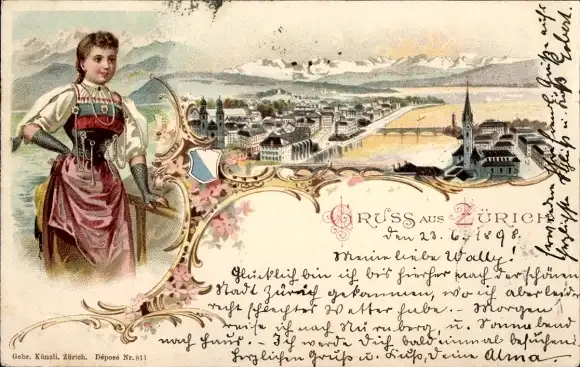 Gruss aus Zürich
den 23.6.1898.
Meine liebe Wally!
Glücklich bin ich bis hierher nach der schönen
Stadt Zürich gekommen, wo ich aber leider
recht schlechtes Wetter habe. — Morgen
reise ich nach Nürnberg, u. Sonnabend
nach Haus. — Ich werde Dich bald einmal besuchen.
Herzlichen Gruss u. Kuss, Deine Alma.
Gebr. Künzli, Zürich. Déposé Nr. 811
herzlichste Grüsse u. Küsse Robert.